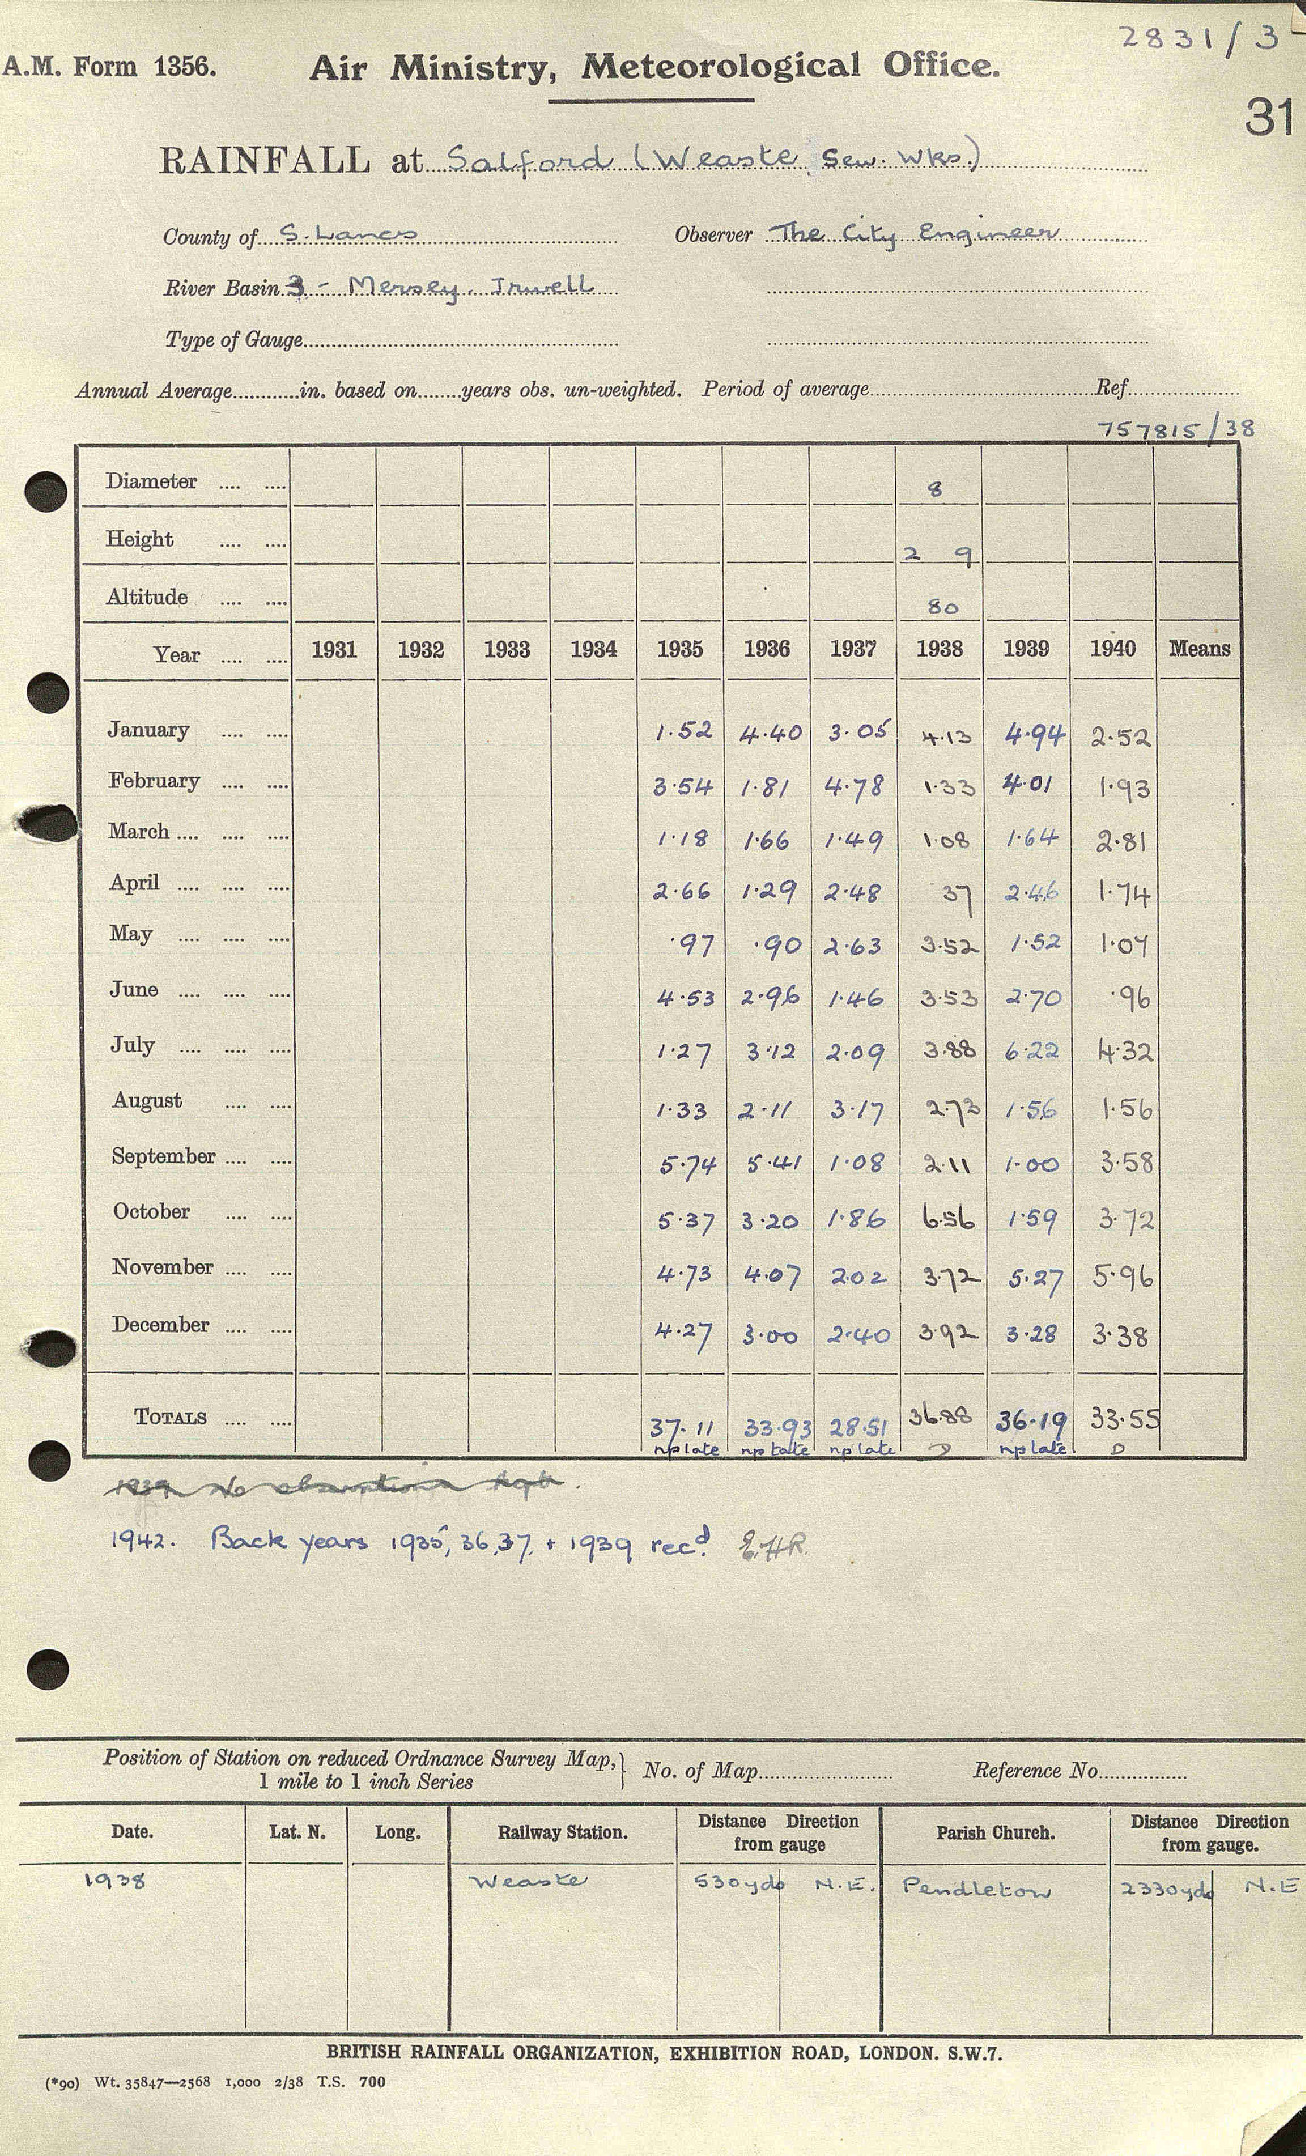 2831/3
A.M. Form 1356. Air Ministry, Meteorological Office.
31
RAINFALL at Salford (Weaste Sew. Wks.)
County of S. Lancs Observer The City Engineer
River Basin 3 - Mersey. Irwell
Type of Gauge
Annual Average in. based on years obs. un-weighted. Period of average Ref
757815/38
Diameter 8
Height 2 9
Altitude 80
Year 1931 1932 1933 1934 1935 1936 1937 1938 1939 1940 Means
January 1.52 4.40 3.05 4.13 4.94 2.52
February 3.54 1.81 4.78 1.33 4.01 1.93
March 1.18 1.66 1.49 1.08 1.64 2.81
April 2.66 1.29 2.48 37 2.46 1.74
May .97 .90 2.63 3.52 1.52 1.07
June 4.53 2.96 1.46 3.53 2.70 .96
July 1.27 3.12 2.09 3.88 6.22 4.32
August 1.33 2.11 3.17 2.73 1.56 1.56
September 5.74 5.41 1.08 2.11 1.00 3.58
October 5.37 3.20 1.86 6.56 1.59 3.72
November 4.73 4.07 2.02 3.72 5.27 5.96
December 4.27 3.00 2.40 3.92 3.28 3.38
TOTALS 37.11 33.93 28.51 36.88 36.19 33.55
np late np late np late D np late D
1939 No observations
1942. Back years 1935, 36, 37, + 1939 recd. E.H.R.
Position of Station on reduced Ordnance Survey Map, No. of Map Reference No.
1 mile to 1 inch Series
Date. Lat. N. Long. Railway Station. Distance Direction from gauge Parish Church. Distance Direction from gauge.
1938 Weaste 530yds N.E. Pendleton 2330yds N.E
BRITISH RAINFALL ORGANIZATION, EXHIBITION ROAD, LONDON. S.W.7.
(*90) Wt. 35847—2568 1,000 2/38 T.S. 700